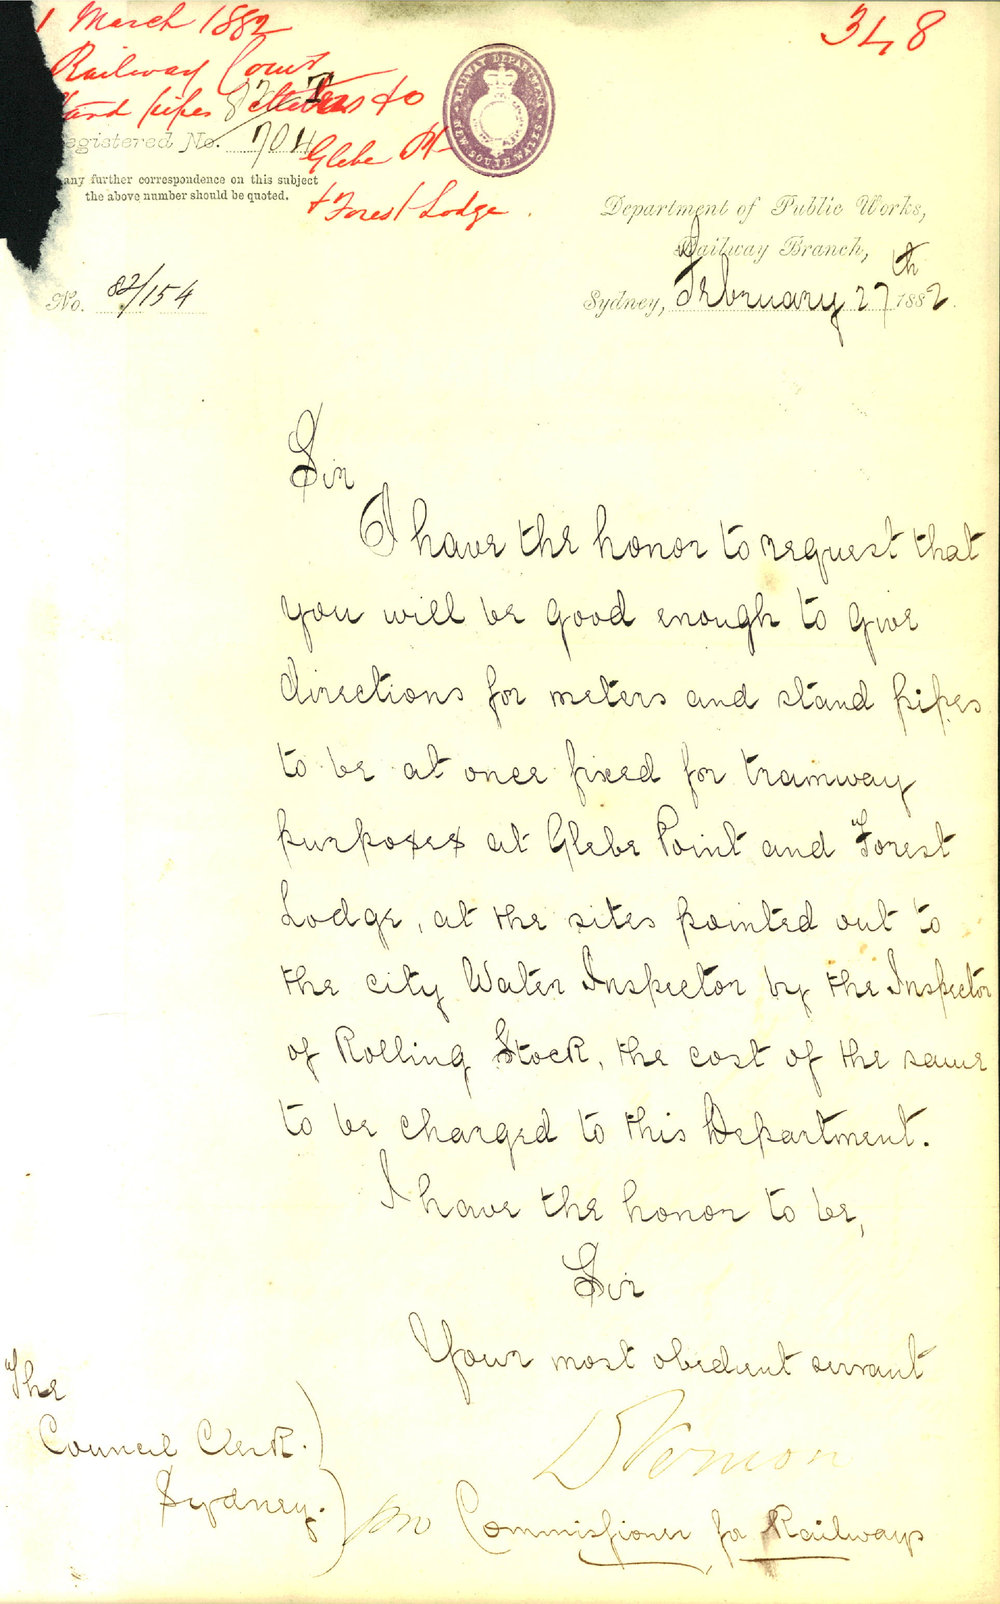 1 March 1882
348
Railway Com
Stand pipes & Meters to
82 2
Registered No. 704
Glebe Pt
& Forest Lodge.
any further correspondence on this subject
the above number should be quoted.
RAILWAY DEPARTMENT
NEW SOUTH WALES
Department of Public Works,
Railway Branch,
Sydney, February 27th 1882.
No. 82/154
Sir
I have the honor to request that
you will be good enough to give
directions for meters and stand pipes
to be at once fixed for tramway
purposes at Glebe Point and Forest
Lodge, at the sites pointed out to
the city Water Inspector by the Inspector
of Rolling Stock, the cost of the same
to be charged to this Department.
I have the honor to be,
Sir
Your most obedient servant
D Vernon
pro Commissioner for Railways
The
Council Clerk.
Sydney.